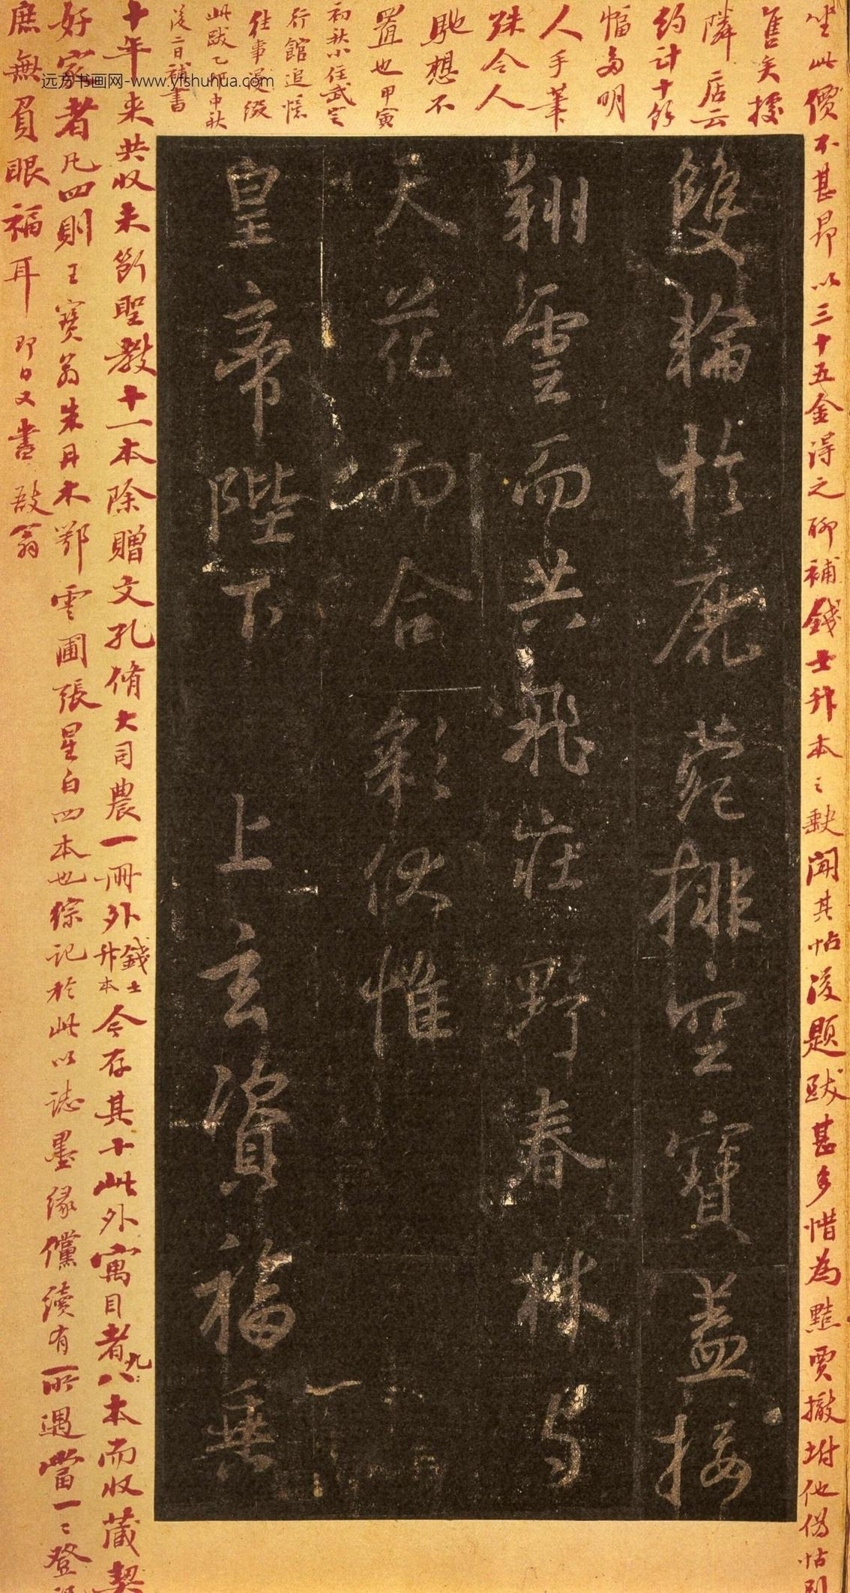 坐此價不甚昂以三十五金得之聊補錢士升本之缺聞其帖後題跋甚多惜為黠賈撤坿他僞帖別
售矣據
隣居云
約計十餘
幅多明
人手筆
殊令人
馳想不
置也甲寅
初秋小住武定
行館追憶
往事漫綴
此跋乙卯中秋
後二日補書
雙輪於鹿菀排空寶蓋接
翔雲而共飛莊野春林与
天花而合彩伏惟
皇帝陛下 上玄資福垂
十年来共收未斷聖教十一本除贈文孔脩大司農一冊外錢士升本今存其十此外寓目者九八本而收藏契
好家者凡四則王寶翁朱丹木鄂雲圃張星白四本也綜記於此以誌墨緣儻續有所遇當一一登
庶無負眼福耳即日又書 翁
远方书画网-www.yfshuhua.com